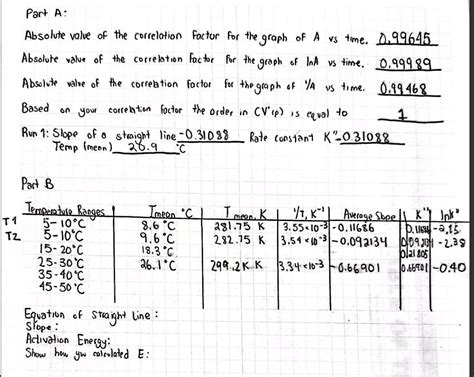 Part A:
Absolute value of the correlation factor for the graph of A vs time. 0.99645
Absolute value of the correlation factor for the graph of lnA vs time. 0.99989
Absolute value of the correlation factor for the graph of 1/A vs time. 0.99468
Based on your correlation factor the order in CV⁺(p) is equal to 1
Run 1: Slope of a straight line -0.31088 Rate constant K" -0.31088
Temp (mean) 26.9 °C
Part B
Temperature Ranges Tmean °C Tmean, K 1/T, K⁻¹ Average Slope K" lnk"
T1 5-10°C 8.6°C 281.75 K 3.55×10⁻³ -0.11686 0.11686 -2.15
T2 5-10°C 9.6°C 282.75 K 3.54×10⁻³ -0.092134 -2.38
15-20°C 18.3°C 0.21805
25-30°C 26.1°C 299.2K K 3.34×10⁻³ -0.66901 0.66901 -0.40
35-40°C
45-50°C
Equation of Straight Line:
Slope:
Activation Energy:
Show how you calculated E: